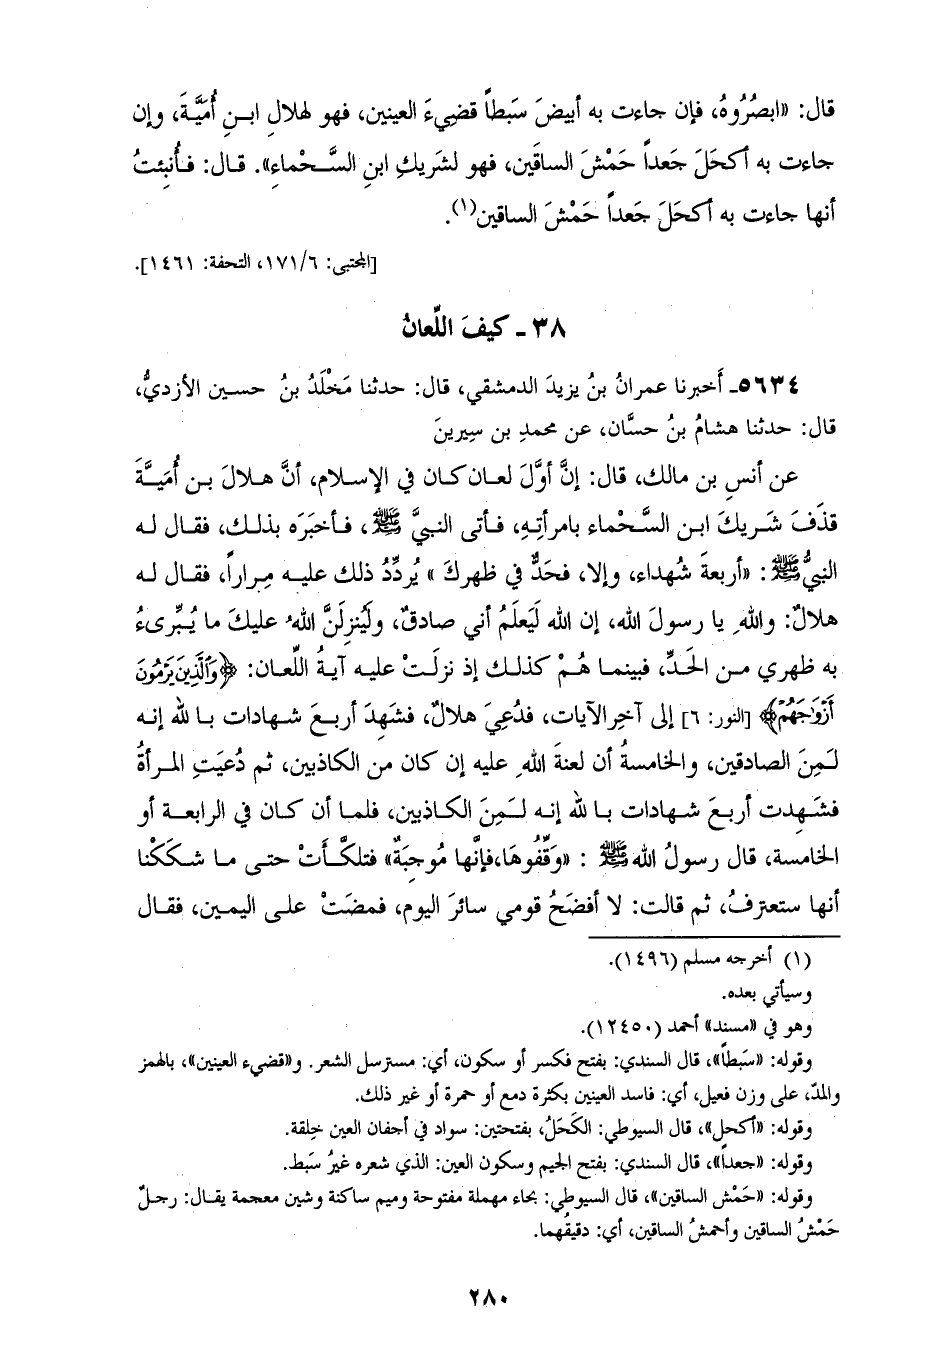 قال: «ابصُرُوهُ، فإن جاءت به أبيضَ سَبطاً قضِيءَ العينين، فهو لهلالِ ابنِ أُمَيَّةَ، وإن
جاءت به أكحَلَ جَعداً حَمْشَ الساقَين، فهو لشَريكِ ابنِ السَّحْماءِ». قال: فأُنبِئتُ
أنها جاءت به أكحَلَ جَعداً حَمْشَ الساقين(١).
[المجتبى: ١٧١/٦، التحفة: ١٤٦١].
٣٨ ـ كيفَ اللّعانُ
٥٦٣٤ـ أَخبرنا عمرانُ بنُ يزيدَ الدمشقي، قال: حدثنا مَخْلَدُ بنُ حسين الأزديُّ،
قال: حدثنا هشامُ بنُ حسَّان، عن محمدِ بن سِيرينَ
عن أنسِ بن مالك، قال: إنَّ أوَّلَ لعان كان في الإسلام، أنَّ هلالَ بن أُمَيَّةَ
قذَفَ شَريكَ ابن السَّحْماء بامرأتِهِ، فأتى النبيَّ ﷺ، فأخبَرَه بذلك، فقال له
النبيُّ ﷺ: «أربعةَ شُهداء، وإلا، فحَدٌّ في ظهركَ» يُردِّدُ ذلك عليه مِراراً، فقال له
هلالٌ: واللهِ يا رسولَ الله، إن الله لَيَعلَمُ أني صادقٌ، ولَيُنزِلَنَّ اللهُ عليكَ ما يُبَرِّىءُ
به ظهري من الحَدِّ، فبينما هُمْ كذلك إذ نزلَتْ عليه آيةُ اللِّعان: ﴿وَالَّذِينَ يَرْمُونَ
أَزْوَاجَهُمْ﴾ [النور: ٦] إلى آخرِ الآيات، فدُعِيَ هلالٌ، فشَهِدَ أربعَ شهادات با لله إنه
لَمِنَ الصادقين، والخامسةُ أن لعنةَ اللهِ عليه إن كان من الكاذبين، ثم دُعيَتِ المرأةُ
فشَهِدت أربعَ شهادات با لله إنه لَمِنَ الكاذبين، فلما أن كان في الرابعة أو
الخامسة، قال رسولُ الله ﷺ : «وَقِّفُوهَا، فإنَّها مُوجبَةٌ» فتلكَّأَتْ حتى ما شككْنا
أنها ستعترفُ، ثم قالت: لا أفضَحُ قومي سائرَ اليوم، فمضَتْ على اليمين، فقال
(١) أخرجه مسلم (١٤٩٦).
وسيأتي بعده.
وهو في «مسند» أحمد (١٢٤٥٠).
وقوله: «سَبَطاً»، قال السندي: بفتح فكسر أو سكون، أي: مسترسل الشعر. و«قضيء العينين»، بالهمز
والمدّ، على وزن فعيل، أي: فاسد العينين بكثرة دمع أو حمرة أو غير ذلك.
وقوله: «أكحل»، قال السيوطي: الكَحَلُ، بفتحتين: سواد في أجفان العين خِلقة.
وقوله: «جعداً»، قال السندي: بفتح الجيم وسكون العين: الذي شعره غيرُ سَبط.
وقوله: «حَمْش الساقين»، قال السيوطي: بحاء مهملة مفتوحة وميم ساكنة وشين معجمة يقال: رجلٌ
حَمْشُ الساقين وأحمشُ الساقين، أي: دقيقُهما.
٢٨٠